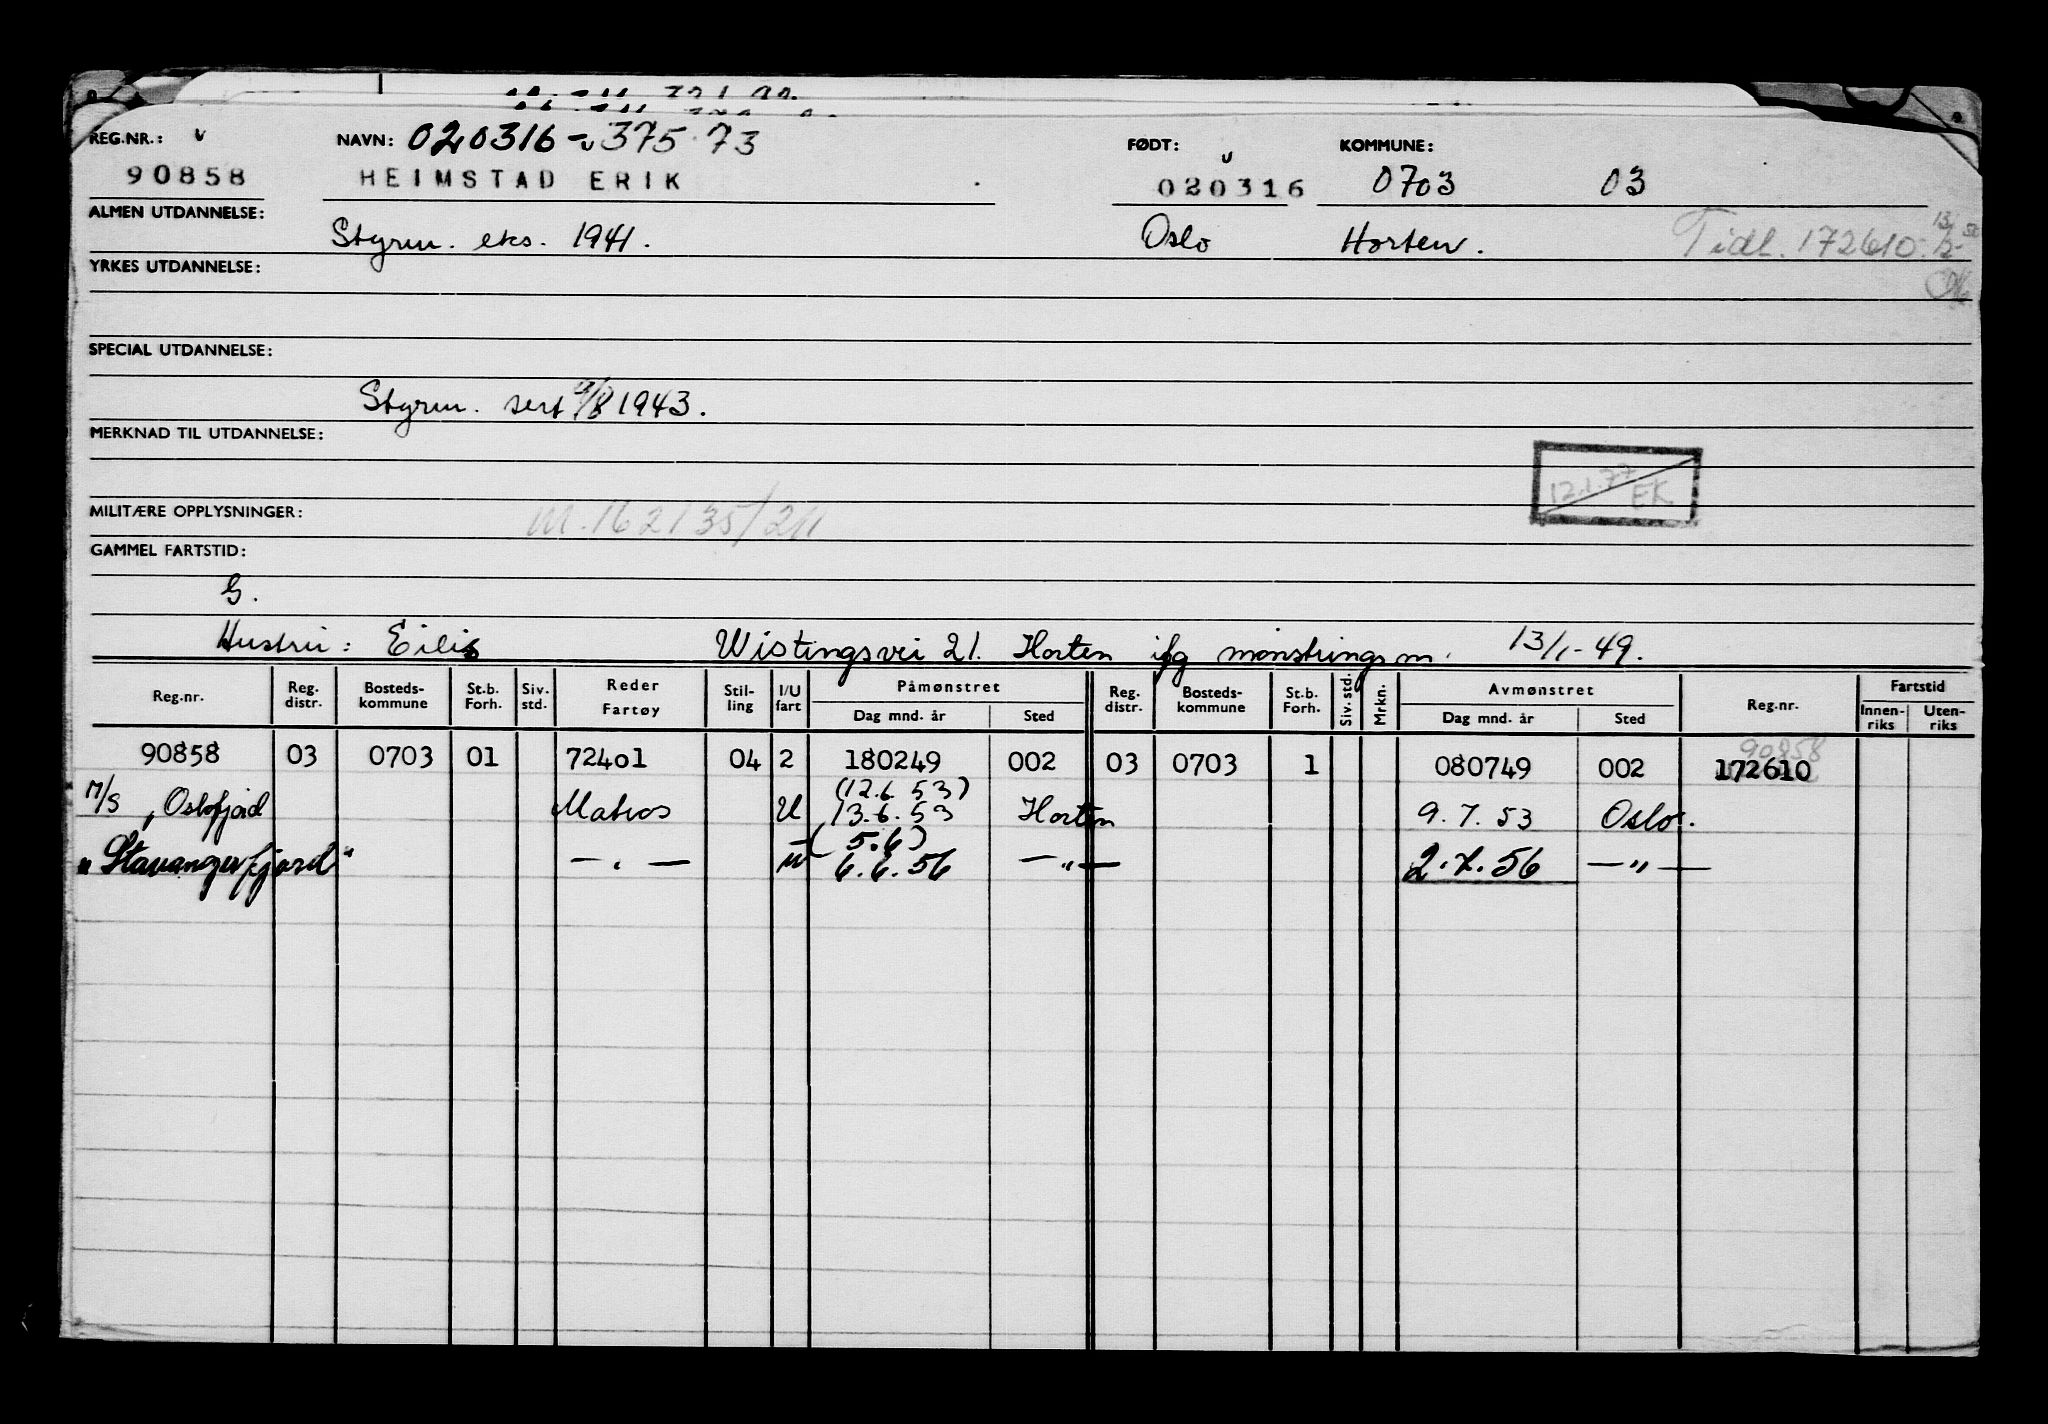 REG.NR.: v NAVN: 020316 - 375 73 FØDT: v KOMMUNE:
90858 HEIMSTAD ERIK 020316 0703 03
ALMEN UTDANNELSE: Styrm. eks. 1941. Oslo Horten. Tidl. 172610.
YRKES UTDANNELSE:
SPECIAL UTDANNELSE:
Styrm. sert /8 1943.
MERKNAD TIL UTDANNELSE:
12.1.77 EK
MILITÆRE OPPLYSNINGER: M. 162135/211
GAMMEL FARTSTID:
G.
Hustru: Eilis Wistingsvei 21. Horten ifg mønstringsm. 13/1-49.
Reg.nr. Reg. distr. Bosteds- kommune St.b. Forh. Siv. std. Reder Fartøy Stil- ling I/U fart Påmønstret Dag mnd. år Sted Reg. distr. Bosteds- kommune St.b. Forh. Siv. std. Mrkn. Avmønstret Dag mnd. år Sted Reg.nr. Fartstid Innen- riks Uten- riks
90858 03 0703 01 72401 04 2 180249 002 03 0703 1 080749 002 90858 172610
(12.6.53)
M/S "Oslofjord Matros U 13.6.53 Horten 9.7.53 Oslo.
(5.6)
"Stavangerfjord" — . — U 6.6.56 — " — 2.7.56 — " —